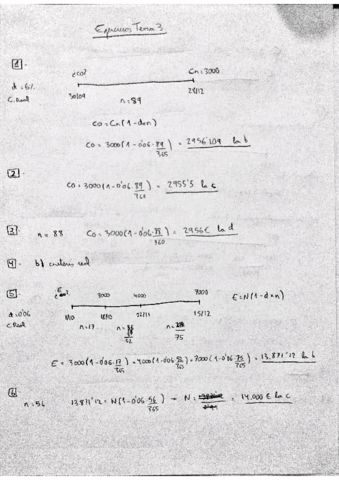 Ejercicios Tema 3
1.
¿co? Cn=3000
d=6%
C. Real
30/09 n=89 28/12
Co=Cn(1-d·n)
Co=3000(1-0'06·89/365)=2956'109 la b
2.
Co=3000(1-0'06·89/360)=2955'5 la c
3. n=88 Co=3000(1-0'06·88/360)=2956€ la d
4. b) criterio real
5. ¿E? 3000 4000 7000 E=N(1-d·n)
d=0'06
C. Real
1/10 18/10 22/11 15/12
n=17 n= 52 n= 75
E=3000(1-0'06·17/365)+4000(1-0'06·52/365)+7000(1-0'06·75/365)=13.871'12 la b
6.
n=56 13.871'12=N(1-0'06·56/365) → N= = 14.000€ la c